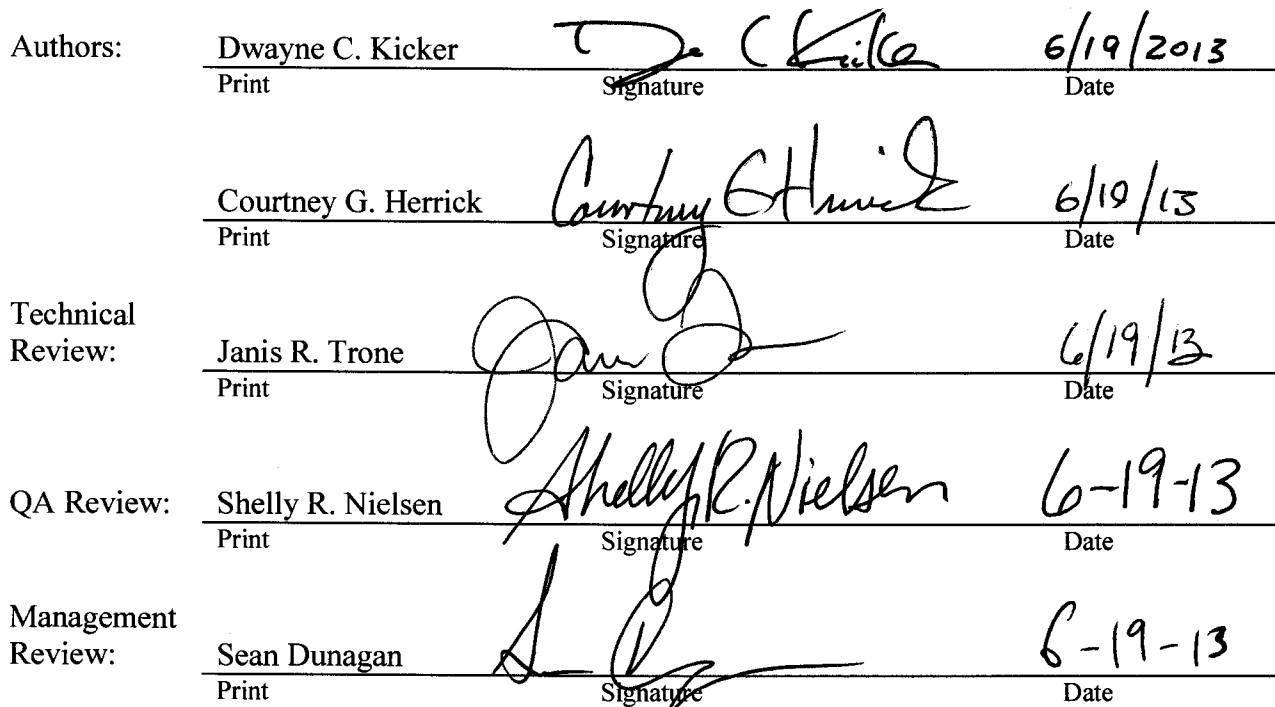 Authors: Dwayne C. Kicker D C Kicker 6/19/2013
Print Signature Date
Courtney G. Herrick Courtney G Herrick 6/19/13
Print Signature Date
Technical
Review: Janis R. Trone 6/19/13
Print Signature Date
QA Review: Shelly R. Nielsen Shelly R. Nielsen 6-19-13
Print Signature Date
Management
Review: Sean Dunagan 6-19-13
Print Signature Date